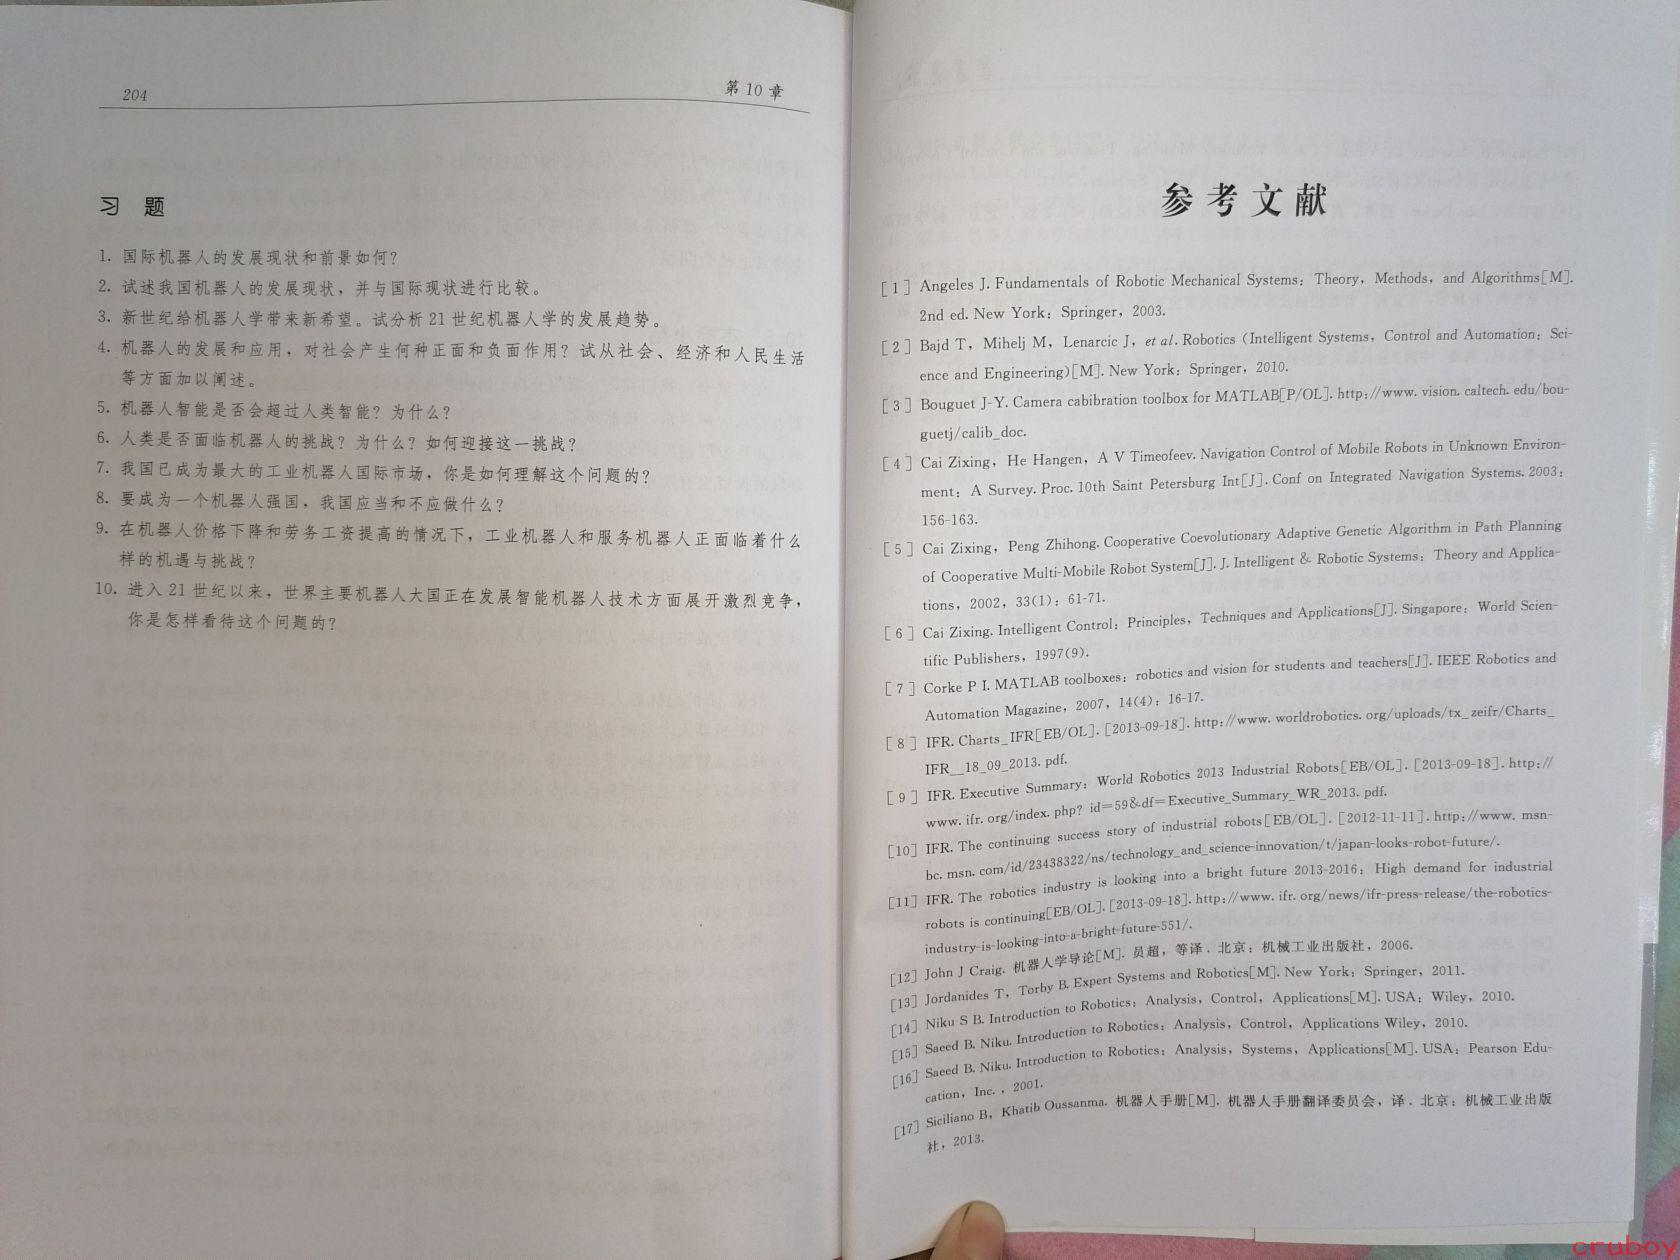 204
第 10 章
习 题
1. 国际机器人的发展现状和前景如何?
2. 试述我国机器人的发展现状，并与国际现状进行比较。
3. 新世纪给机器人学带来新希望。试分析 21 世纪机器人学的发展趋势。
4. 机器人的发展和应用，对社会产生何种正面和负面作用? 试从社会、经济和人民生活
等方面加以阐述。
5. 机器人智能是否会超过人类智能? 为什么?
6. 人类是否面临机器人的挑战? 为什么? 如何迎接这一挑战?
7. 我国已成为最大的工业机器人国际市场，你是如何理解这个问题的?
8. 要成为一个机器人强国，我国应当和不应做什么?
9. 在机器人价格下降和劳务工资提高的情况下，工业机器人和服务机器人正面临着什么
样的机遇与挑战?
10. 进入 21 世纪以来，世界主要机器人大国正在发展智能机器人技术方面展开激烈竞争，
你是怎样看待这个问题的?
参考文献
[1] Angeles J. Fundamentals of Robotic Mechanical Systems: Theory, Methods, and Algorithms[M].
2nd ed. New York: Springer, 2003.
[2] Bajd T, Mihelj M, Lenarcic J, et al. Robotics (Intelligent Systems, Control and Automation: Sci-
ence and Engineering)[M]. New York: Springer, 2010.
[3] Bouguet J-Y. Camera cabibration toolbox for MATLAB[P/OL]. http://www. vision. caltech. edu/bou-
guetj/calib_doc.
[4] Cai Zixing, He Hangen, A V Timofeev. Navigation Control of Mobile Robots in Unknown Environ-
ment: A Survey. Proc. 10th Saint Petersburg Int[J]. Conf on Integrated Navigation Systems. 2003:
156-163.
[5] Cai Zixing, Peng Zhihong. Cooperative Coevolutionary Adaptive Genetic Algorithm in Path Planning
of Cooperative Multi-Mobile Robot System[J]. J. Intelligent & Robotic Systems: Theory and Applica-
tions, 2002, 33(1): 61-71.
[6] Cai Zixing. Intelligent Control: Principles, Techniques and Applications[J]. Singapore: World Scien-
tific Publishers, 1997(9).
[7] Corke P I. MATLAB toolboxes: robotics and vision for students and teachers[J]. IEEE Robotics and
Automation Magazine, 2007, 14(4): 16-17.
[8] IFR. Charts_IFR[EB/OL]. [2013-09-18]. http://www. worldrobotics. org/uploads/tx_zeifr/Charts_
IFR__18_09_2013. pdf.
[9] IFR. Executive Summary: World Robotics 2013 Industrial Robots[EB/OL]. [2013-09-18]. http://
www. ifr. org/index. php? id=59&df=Executive_Summary_WR_2013. pdf.
[10] IFR. The continuing success story of industrial robots[EB/OL]. [2012-11-11]. http://www. msn-
bc. msn. com/id/23438322/ns/technology_and_science-innovation/t/japan-looks-robot-future/.
[11] IFR. The robotics industry is looking into a bright future 2013-2016: High demand for industrial
robots is continuing[EB/OL]. [2013-09-18]. http://www. ifr. org/news/ifr-press-release/the-robotics-
industry-is-looking-into-a-bright-future-551/.
[12] John J Craig. 机器人学导论[M]. 员超，等译. 北京：机械工业出版社，2006.
[13] Jordanides T, Torby B. Expert Systems and Robotics[M]. New York: Springer, 2011.
[14] Niku S B. Introduction to Robotics: Analysis, Control, Applications[M]. USA: Wiley, 2010.
[15] Saeed B. Niku. Introduction to Robotics: Analysis, Control, Applications Wiley, 2010.
[16] Saeed B. Niku. Introduction to Robotics: Analysis, Systems, Applications[M]. USA: Pearson Edu-
cation, Inc. , 2001.
[17] Siciliano B, Khatib Oussanma. 机器人手册[M]. 机器人手册翻译委员会，译. 北京：机械工业出版
社，2013.
cruboy